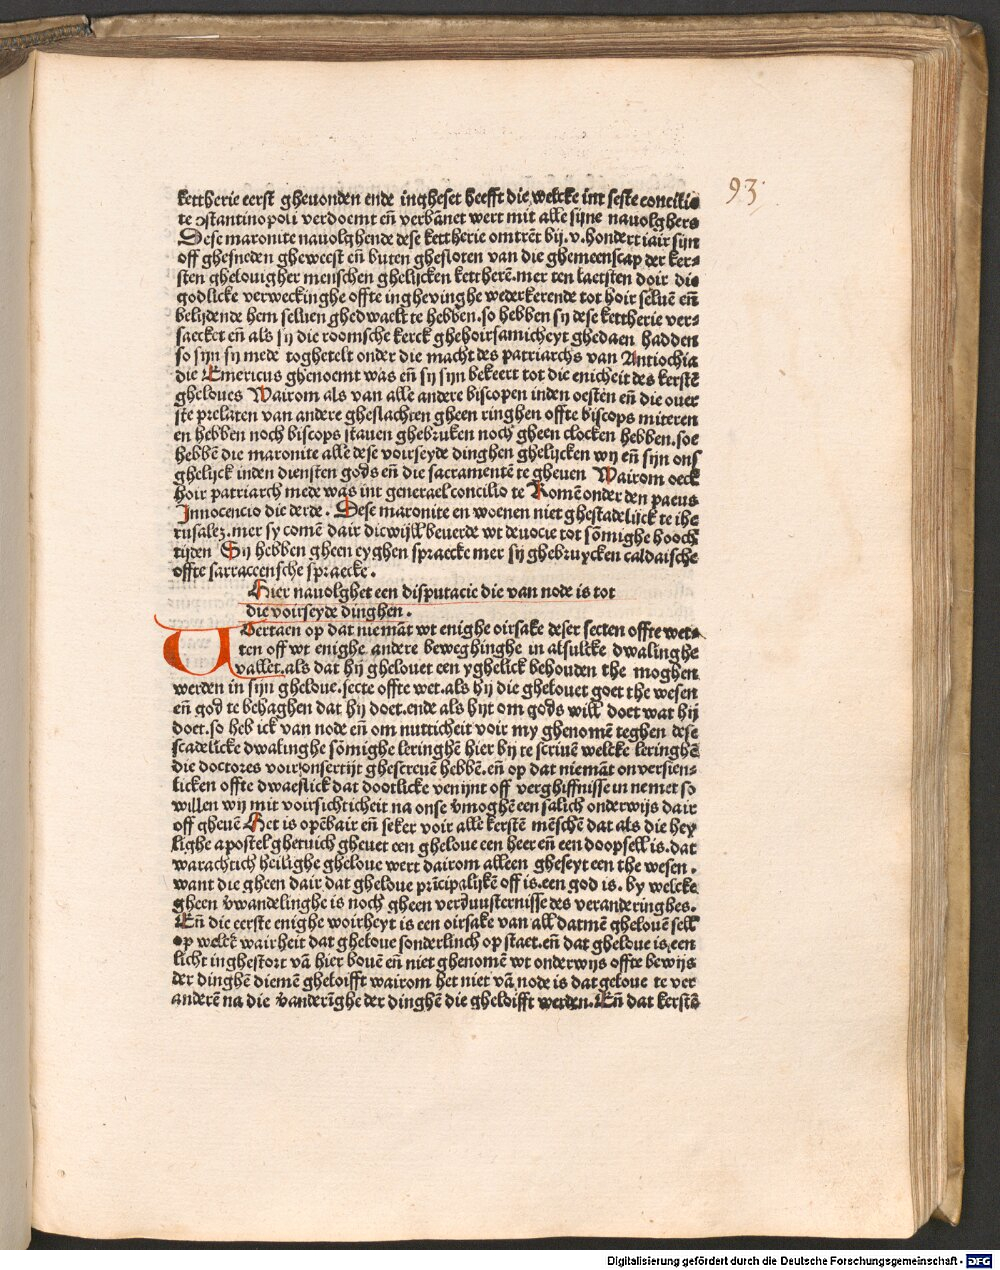 93.
kettherie eerst gheuonden ende ingheset heefft die welcke int seste concilie
te ↄstantinopoli verdoemt en̄ verbānet wert mit alle sijne nauolghers
Dese maronite nauolghende dese kettherie omtrēt bij.v.hondert iair sijn
off ghesneden gheweest en̄ buten ghesloten van die ghemeenscap der ker⸗
sten ghelouigher menschen ghelijcken kettherē.mer ten laetsten doir die
godlicke verweckinghe offte inghevinghe wederkerende tot hoir seluē en̄
belijdende hem seluen ghedwaelt te hebben.so hebben sij dese kettherie ver⸗
saecket en̄ als sij die roomsche kerck ghehoirsamicheyt ghedaen hadden
so sijn sij mede toghetelt onder die macht des patriarchs van Antiochia
die Emericus ghenoemt was en̄ sij sijn bekeert tot die enicheit des kerstē
gheloues Wairom als van alle andere biscopen inden oestēn en̄ die ouer
ste prelaten van andere gheslachten gheen ringhen offte biscops miteren
en hebben noch biscops stauen ghebruken noch gheen clocken hebben.soe
hebbē die maronite alle dese voirseyde dinghen ghelijcken wij en̄ sijn ons
ghelijck inden diensten gods en̄ die sacramentē te gheuen Wairom oeck
hoir patriarch mede was int generael concilio te Romē onder den paeus
Innocencio die derde. Dese maronite en woenen niet ghestadelijck te ihe
rusalez.mer sy comē dair dicwijll beuerde wt deuocie tot sōmighe hooch
tijden Sij hebben gheen eyghen spraecke mer sij ghebruycken caldaische
offte sarraceensche spraecke.
Hier nauolghet een disputacie die van node is tot
die voirseyde dinghen.
Vertaen op dat niemāt wt enighe oirsake deser secten offte wet⸗
ten off wt enighe andere beweghinghe in alsulcke dwalinghe
vallet.als dat hij ghelouet een yghelick behouden the moghen
werden in sijn gheloue.secte offte wet.als hij die ghelouet goet the wesen
en̄ god te behaghen dat hij doet.ende als hijt om gods will doet wat hij
doet.so heb ick van node en̄ om nutticheit voir my ghenomē teghen dese
scadelicke dwalinghe sōmighe leringhē hier bij te scriuē welcke leringhē
die doctores voir onsertijt ghescreuē hebbē.en̄ op dat niemāt onversien⸗
licken offte dwaeslick dat dootlicke venijnt off verghiffnisse in nemet so
willen wij mit voirsichticheit na onse v̄moghē een salich onderwijs dair
off gheuē Het is opēbair en̄ seker voir alle kerstē mēschē dat als die hey
lighe apostel ghetuich gheuet een gheloue een heer en̄ een doopsell is.dat
warachtich heilighe gheloue wert dairom alleen gheseyt een the wesen.
want die gheen dair dat gheloue prīcipalijkē off is.een god is.by welcke
gheen v̄wandelinghe is noch gheen verduusternisse des veranderinghes.
En̄ die eerste enighe woirheyt is een oirsake van all datmē ghelouē sell
op welcē wairheit dat gheloue sonderlinch op staet.en̄ dat gheloue is een
licht inghestort vā hier bouē en̄ niet ghenomē wt onderwijs offte bewijs
der dinghē diemē gheloifft wairom het niet vā node is dat geloue te ver
anderē na die v̄anderīghe der dinghē die gheloifft werden.En̄ dat kerstē
Digitalisierung gefördert durch die Deutsche Forschungsgemeinschaft - DFG